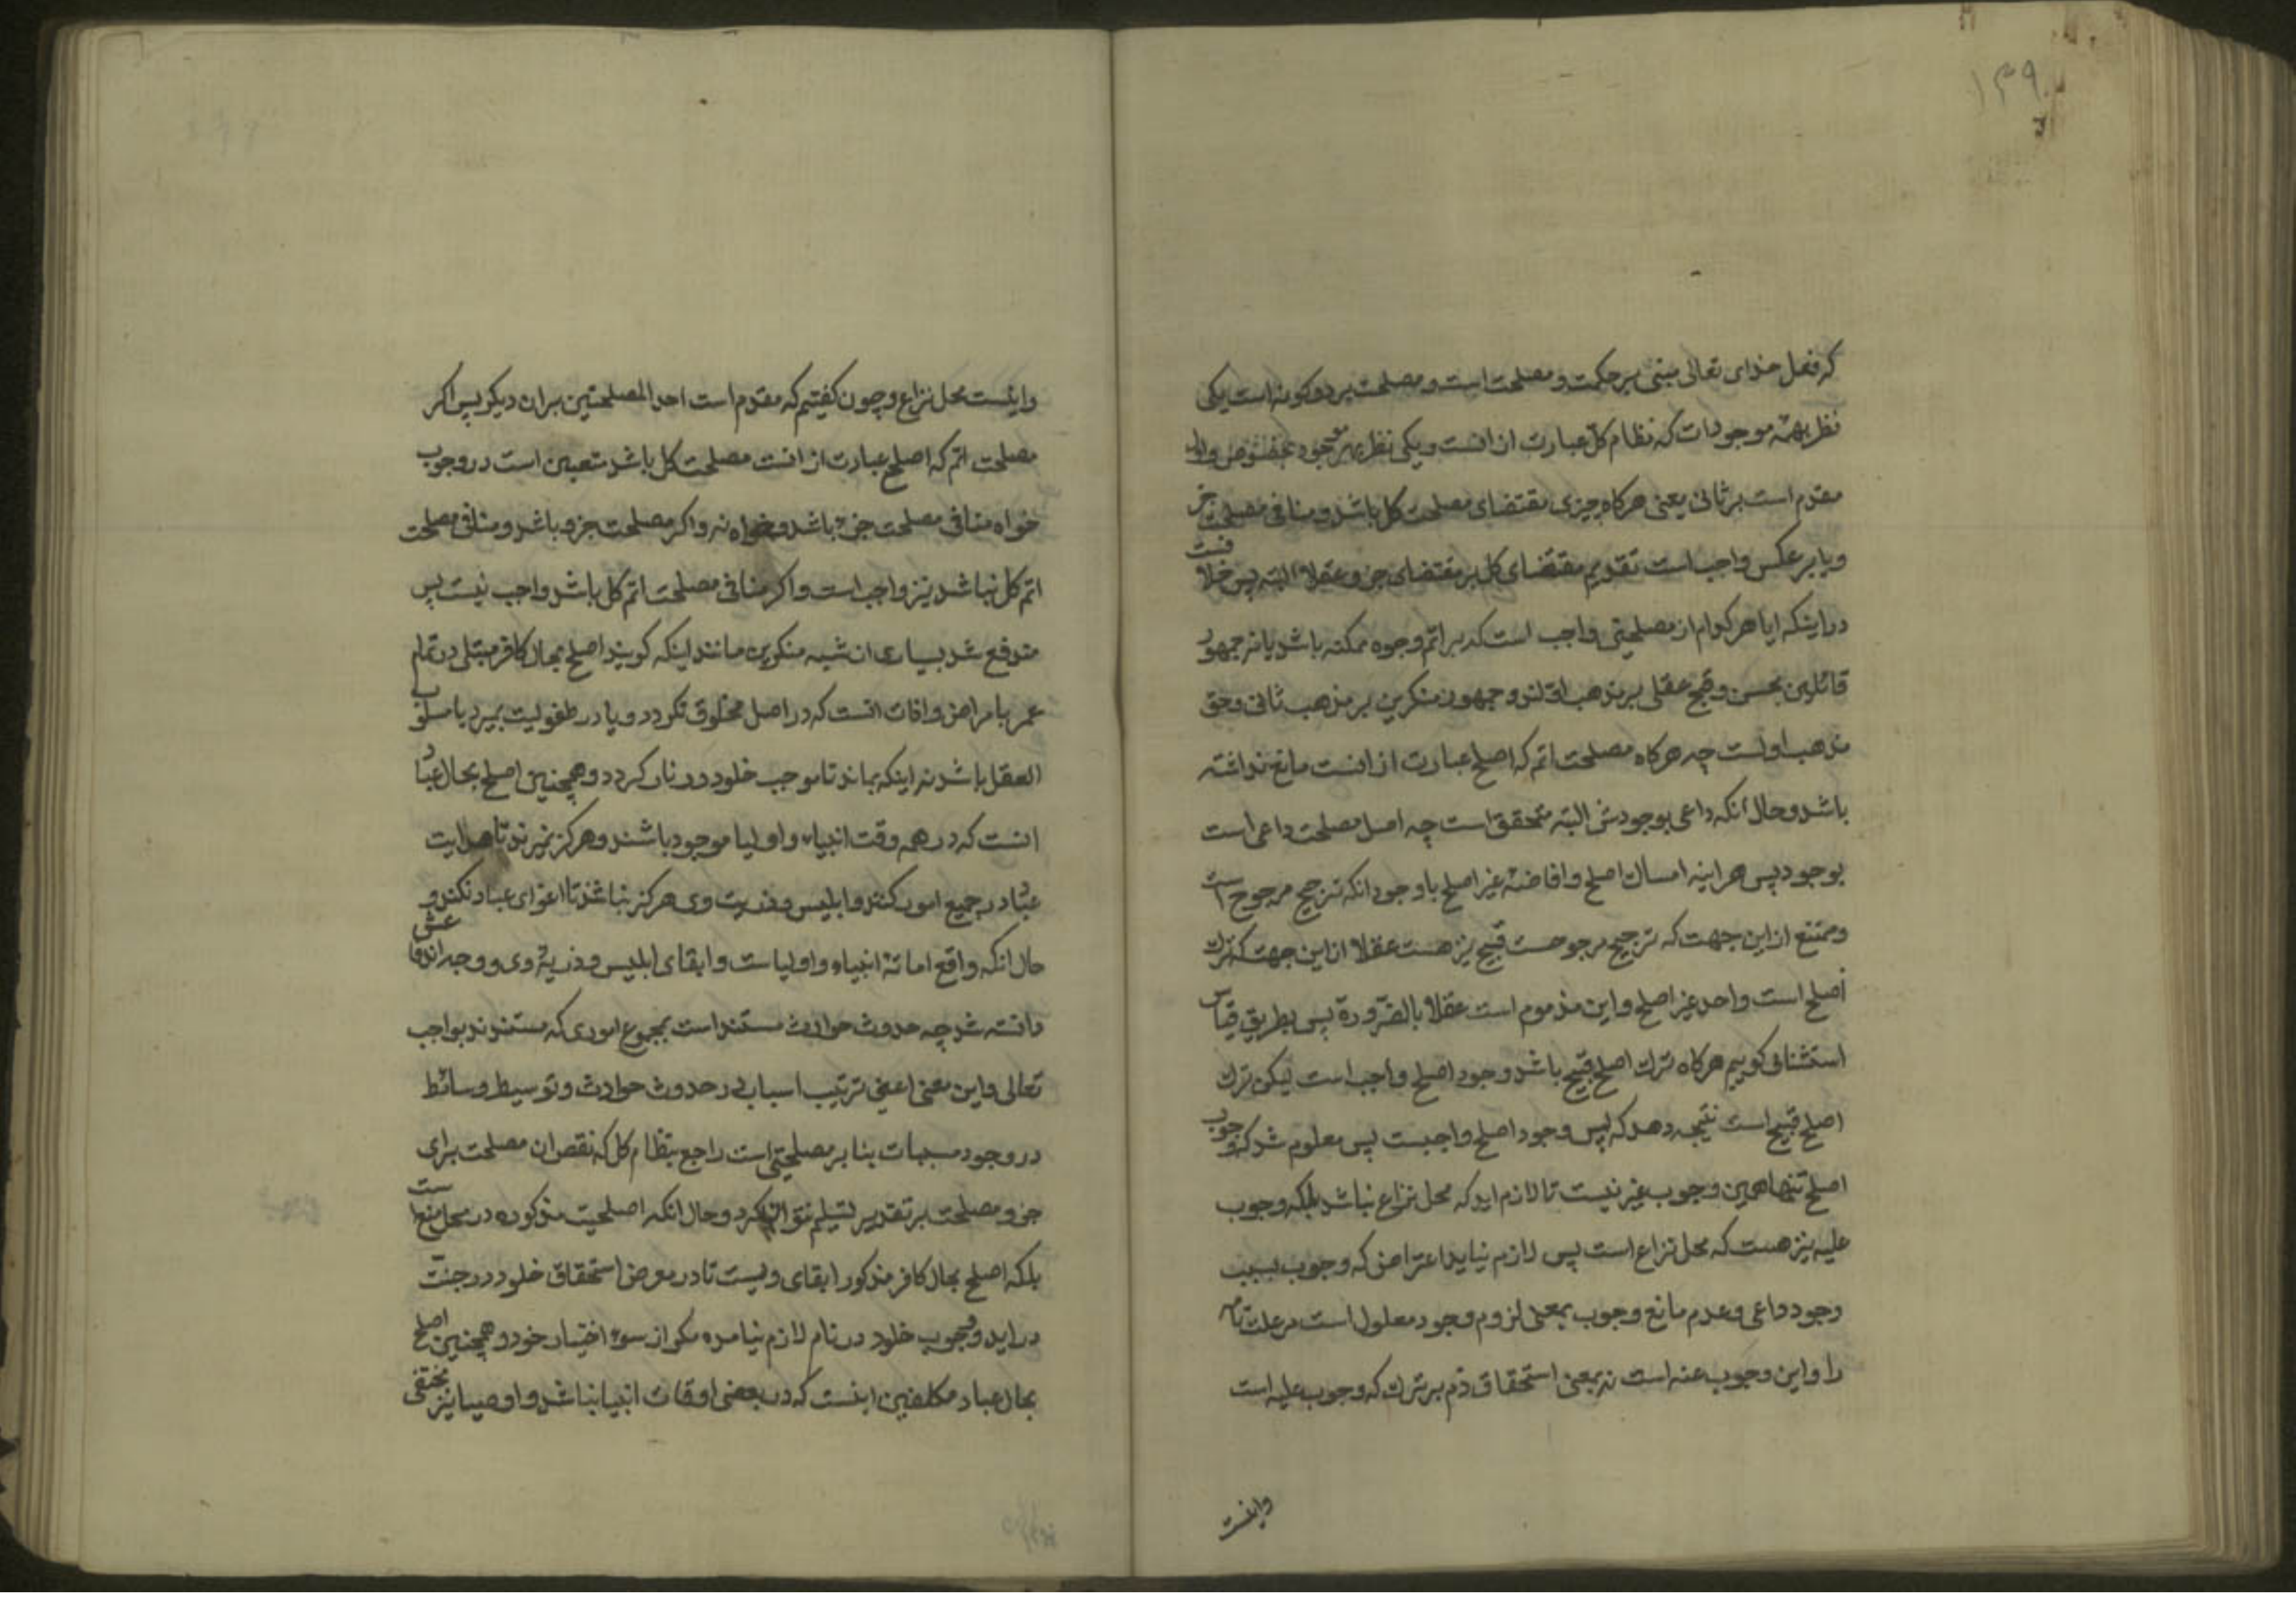 ۱۳۹
که فعل خدای تعالی مبنی بر حکمت و مصلحت است و مصلحت بر دو کونه است یکی
نظر بهمهٔ موجودات که نظام کل عبارت از انست و یکی نظر بهر موجود بخصوص و اول
مقدم است بر ثانی یعنی هرکاه چیزی مقتضای مصلحت کل باشد و منافی مصلحت جز
و یا بر عکس واجب است تقدیم مقتضای کل بر مقتضای جزو عقلا البته پس خلافست
در اینکه ایا هر کدام از مصلحتی واجب است که بر اتم وجوه ممکنه باشد یا نه جمهور
قائلین بحسن و قبح عقلی بر مذهب اولند و جمهور منکرین بر مذهب ثانی و حق
مذهب اولست چه هرکاه مصلحت اتم که اصلح عبارت از انست مانع نداشته
باشد و حال انکه داعی بوجودش البته متحقق است چه اصل مصلحت داعی است
بوجود پس هر اینه امساك اصلح و افاضهٔ غیر اصلح باوجود انکه ترجیح مرجوح است
و ممتنع از این جهت که ترجیح مرجوحست قبیح نیز هست عقلا از این جهت که ترك
اصلح است واحد غیر اصلح و این مذموم است عقلا بالضّرورة پس بطریق قیاس
استثنائی کوییم هرکاه ترك اصلح قبیح باشد وجود اصلح واجب است لیکن ترك
اصلح قبیح است نتیجه دهد که پس وجود اصلح واجبست پس معلوم شد که وجوب
اصلح تنها همین وجوب غیر نیست تا لازم اید که محل نزاع نباشد بلکه وجوب
علیه نیز هست که محل نزاع است پس لازم نیاید اعتراض که وجوب بسبب
وجود داعی و عدم مانع وجوب بمعنی لزوم وجود معلول است مر علت تامه
را و این وجوب عنه است نه بمعنی استحقاق ذم بر ترك که وجوب علیه است
واینست
واینست محل نزاع و چون کفتیم که مقدم است احد المصلحتین بران دیکر پس اکر
مصلحت اتم که اصلح عبارت از انست مصلحت کل باشد متعین است در وجوب
خواه منافی مصلحت جزء باشد و خواه نه و اکر مصلحت جزو باشد و منافی مصلحت
اتم کل نباشد نیز واجب است و اکر منافی مصلحت اتم کل باشد واجب نیست پس
مندفع شد بسیاری از شبه منکرین مانند اینکه کویند اصلح بحال کافر مبتلی در تمام
عمر بامراض و افات انست که در اصل مخلوق نکردد و یا در طفولیت بمیرد یا مسلوب
العقل باشد نه اینکه بماند تا موجب خلود در نار کردد و همچنین اصلح بحال عباد
انست که در همه وقت انبیاء و اولیا موجود باشند و هرکز نمیرند تا هدایت
عباد در جمیع امور کنند و ابلیس و ذریت وی هرکز نباشند تا اغوای عباد نکنند و
حال انکه واقع اماتهٔ انبیاء و اولیاست و ابقای ابلیس و ذریهٔ وی و وجه اندفاعش
دانسته شد چه حدوث حوادث مستند است بمجموع اموری که مستندند بواجب
تعالی و این معنی اعنی ترتیب اسباب در حدوث حوادث و توسیط وسائط
در وجود مسببات بنا بر مصلحتی است راجع بنظام کل که نقص ان مصلحت برای
جزو مصلحت بر تقدیر تسلیم نتوان کرد و حال انکه اصلحیت مذکوره در محل منع است
بلکه اصلح بحال کافر مذکور ابقای ویست تا در معرض استحقاق خلود در جنت
در اید و وجوب خلود در نام لازم نیامده مکر از سوء اختیار خود و همچنین اصلح
بحال عباد مکلفین اینست که در بعضی اوقات انبیا نباشد و اوصیا نیز مختفی